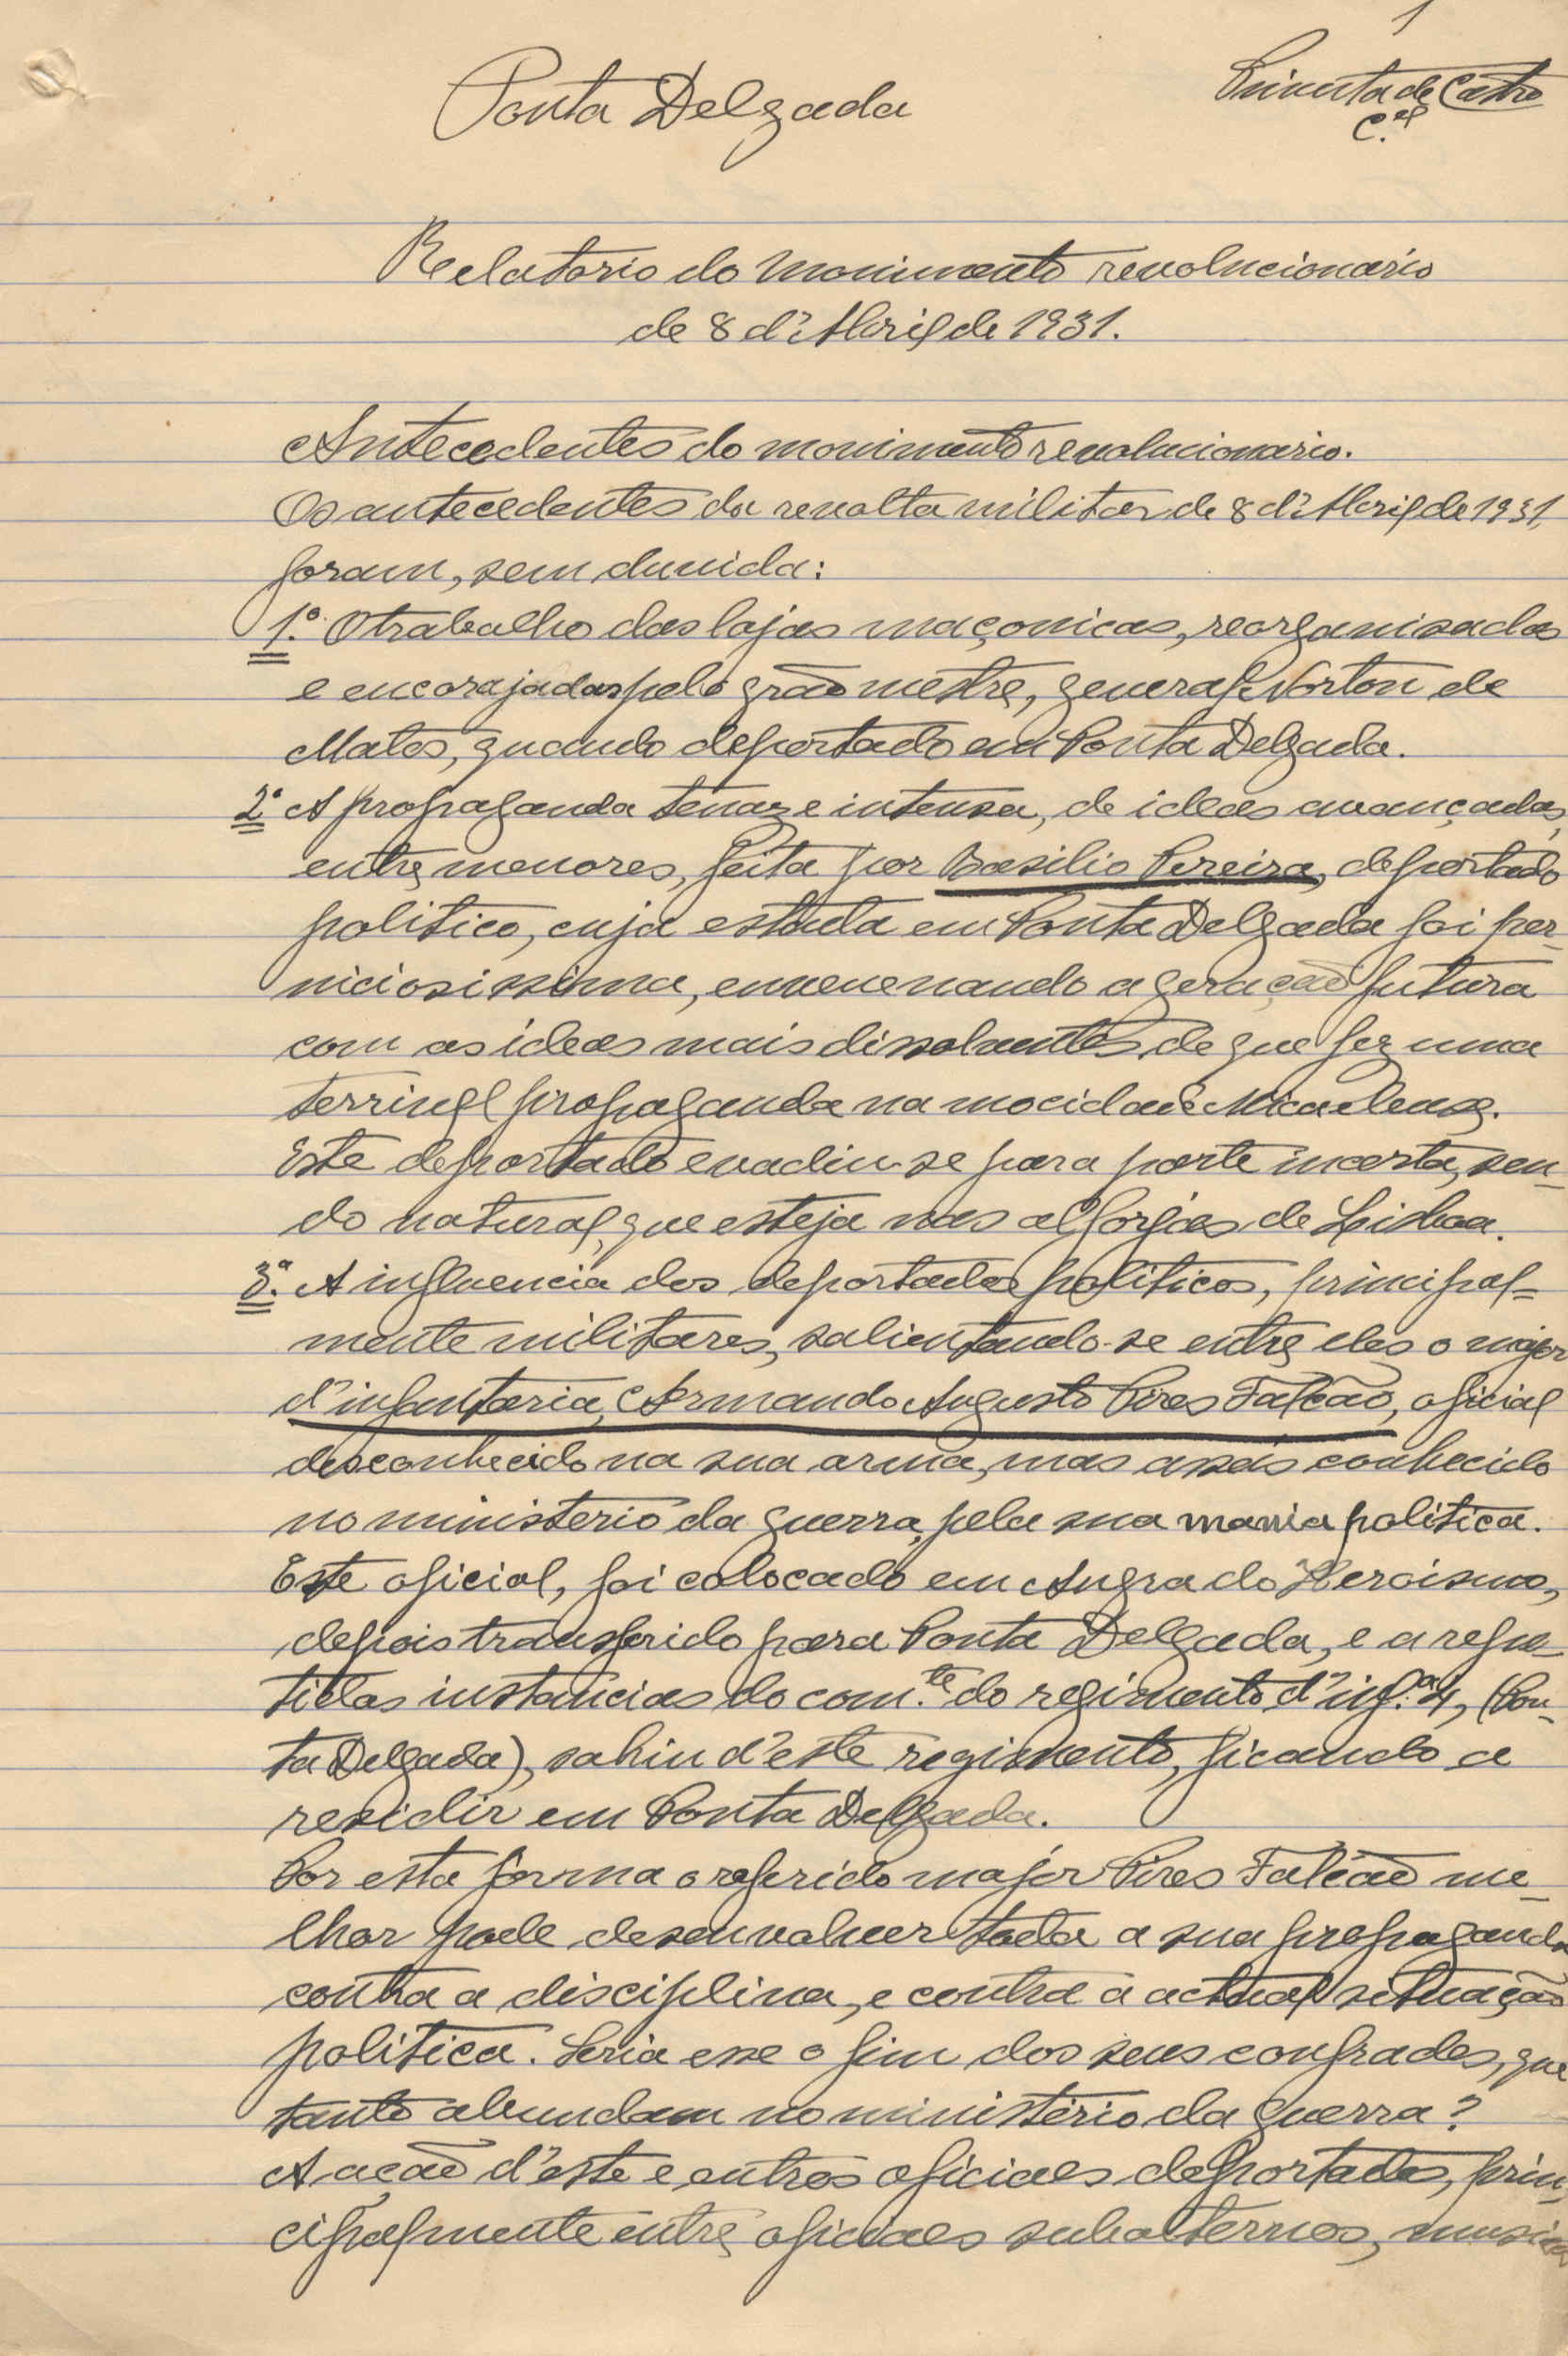 1
Ponta Delgada
Pimenta de Castro
C.el
Relatorio do Movimento revolucionário
de 8 d'Abril de 1931.
Antecedentes do movimento revolucionario.
Os antecedentes da revolta militar de 8 d'Abril de 1931,
foram, sem duvida:
1.º O trabalho das lojas maçonicas, reorganisadas
e encorajadas pelo grão mestre, general Norton de
Matos, quando deportado em Ponta Delgada.
2.º A propaganda tenaz e intensa, de ideas avançadas,
entre menores, feita por Basilio Pereira, deportado
politico, cuja estada em Ponta Delgada foi per-
niciosissima, envenenando a geração futura
com as ideas mais dissolventes de que fez uma
terrivel propaganda na mocidade Micaelense.
Este deportado evadiu-se para parte incerta, sen-
do natural, que esteja nas alforjas de Lisboa.
3.ª A influencia dos deportados politicos, principal-
mente militares, salientando-se entre eles o major
d'infantaria, Armando Augusto Pires Falcão, oficial
desconhecido na sua arma, mas assás conhecido
no ministerio da guerra, pela sua mania politica.
Este oficial, foi colocado em Angra do Heroismo,
depois transferido para Ponta Delgada, e a repe-
tidas instancias do com.te do regimento d'inf.a 4, (Pon-
ta Delgada), sahiu d'este regimento, ficando a
residir em Ponta Delgada.
Por esta forma o referido major Pires Falcão me-
lhor pode desenvolver toda a sua propaganda
contra a disciplina, e contra a actual situação
politica. Seria esse o fim dos seus confrades, que
tanto abundam no ministério da guerra?
A acão d'este e outros oficiaes deportados, prin-
cipalmente entre oficiaes subalternos,